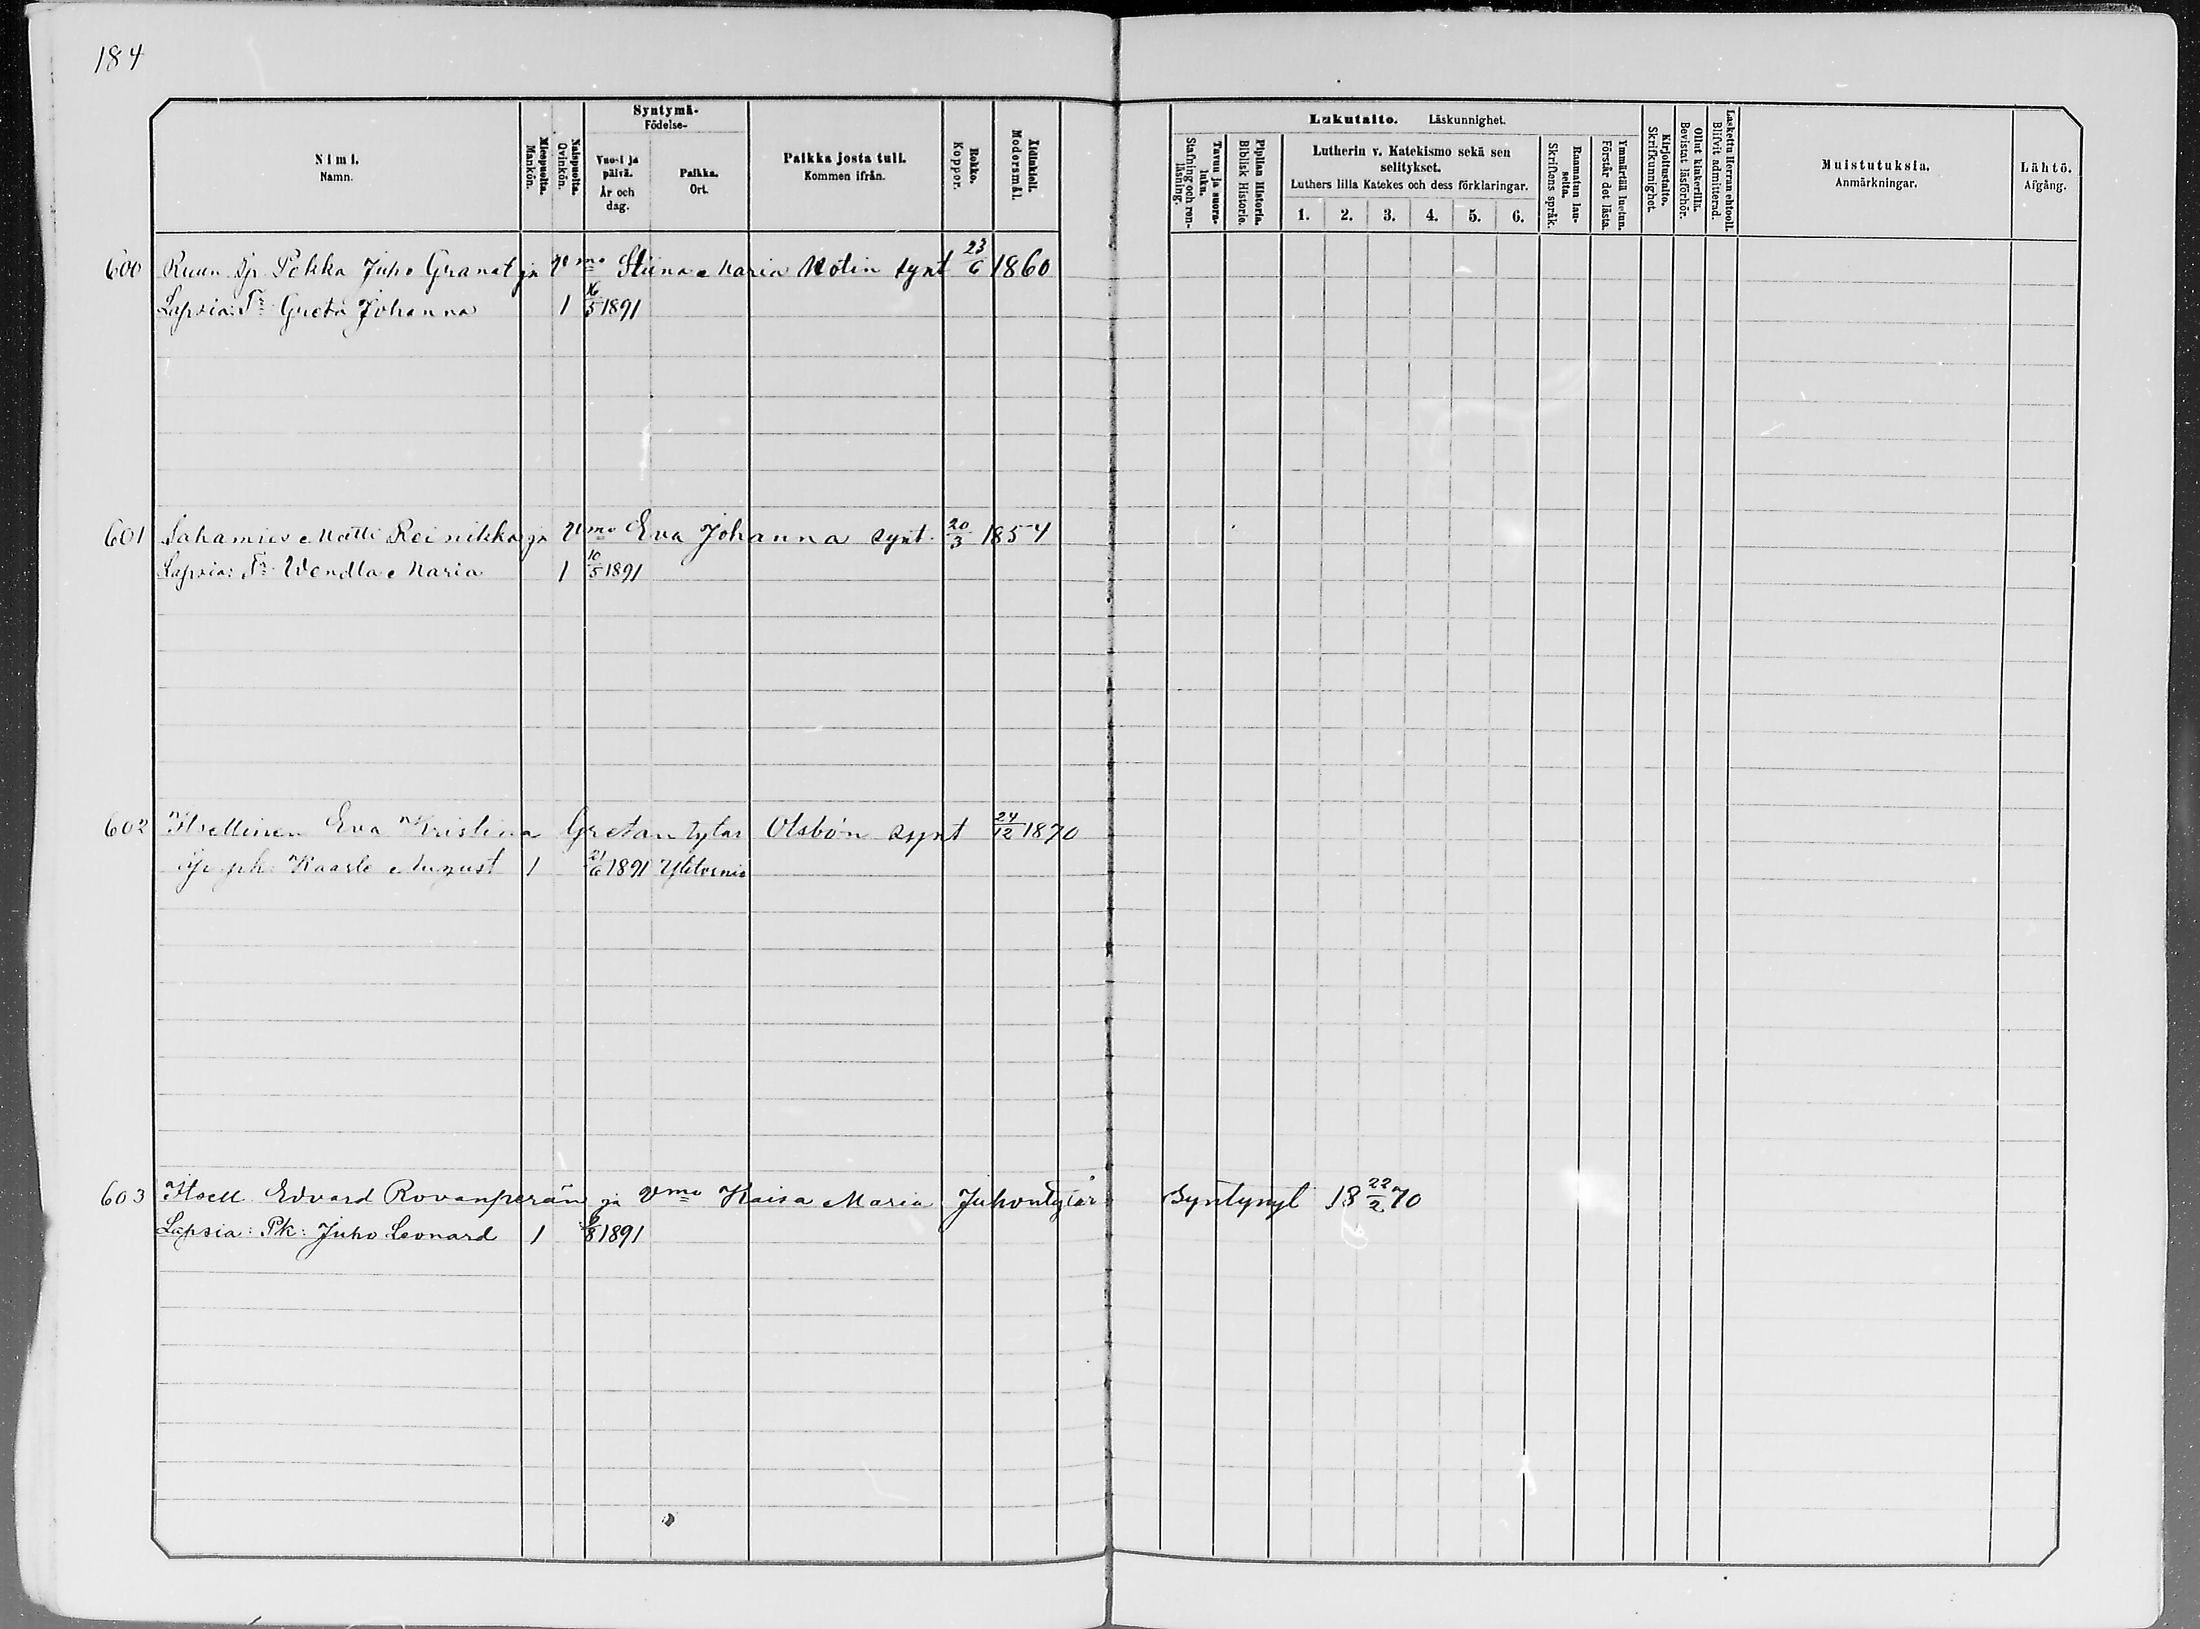 184
Syntymä-
Födelse-
Nimi.
Namn.
Miespuolta.
Mankön.
Naispuolta.
Qvinkön.
Vuosi ja päivä.
År och dag.
Paikka.
Ort.
Paikka josta tuli.
Kommen ifrån.
Rokko.
Koppor.
Äidinkieli.
Modersmål.
Lukutaito. Läskunnighet.
Tavuu ja suora-luku.
Stafning och ren-läsning.
Piplian Historia.
Biblisk Historie.
Lutherin v. Katekismo sekä sen
selitykset.
Luthers lilla Katekes och dess förklaringar.
1. 2. 3. 4. 5. 6.
Raamatun lau-seita.
Skriftens språk.
Ymmärtää luetun.
Förstår det lästa.
Kirjoitustaito.
Skrifkunnighet.
Ollut kinkerillä.
Bevistat läsförhör.
Laskettu Herran ehtooll.
Blifvit admitterad.
Muistutuksia.
Anmärkningar.
Lähtö.
Afgång.
600 Ruun Pekka Juho Granat ja Vmo Stiina Maria synt 23/6 1860
Lapsia: Tr Greta Johanna 1 1891
601 Sahamies Matti Reinikka ja Vmo Eva Johanna synt. 20/3 1854
Lapsia: Tr Wendla Maria 1 10/5 1891
602 Itsellinen Eva Kristina Gretan tytär synt 24/12 1870
Äp. pk: Kaarlo August 1 21/6 1891 Ylitornio
603 Itsell Edvard Rovanperän ja Vmo Kaisa Maria Juhontytär Syntynyt 18 22/2 70
Lapsia: Pk: Juho Leonard 1 1891